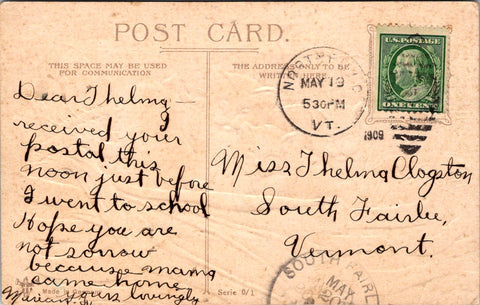 POST CARD.
THIS SPACE MAY BE USED
FOR COMMUNICATION
THE ADDRESS ONLY TO BE
WRITTEN HERE
U.S. POSTAGE
ONE CENT
MAY 13
530PM
VT.
1909
Dear Thelma —
I
received your
postal this
noon just before
I went to school
Hope you are
not sorrow
because mama
came home
yours lovingly
Miss Thelma Clogston
South Fairlee,
Vermont.
SOUTH FAIR
MAY
Made in
Serie 0/1